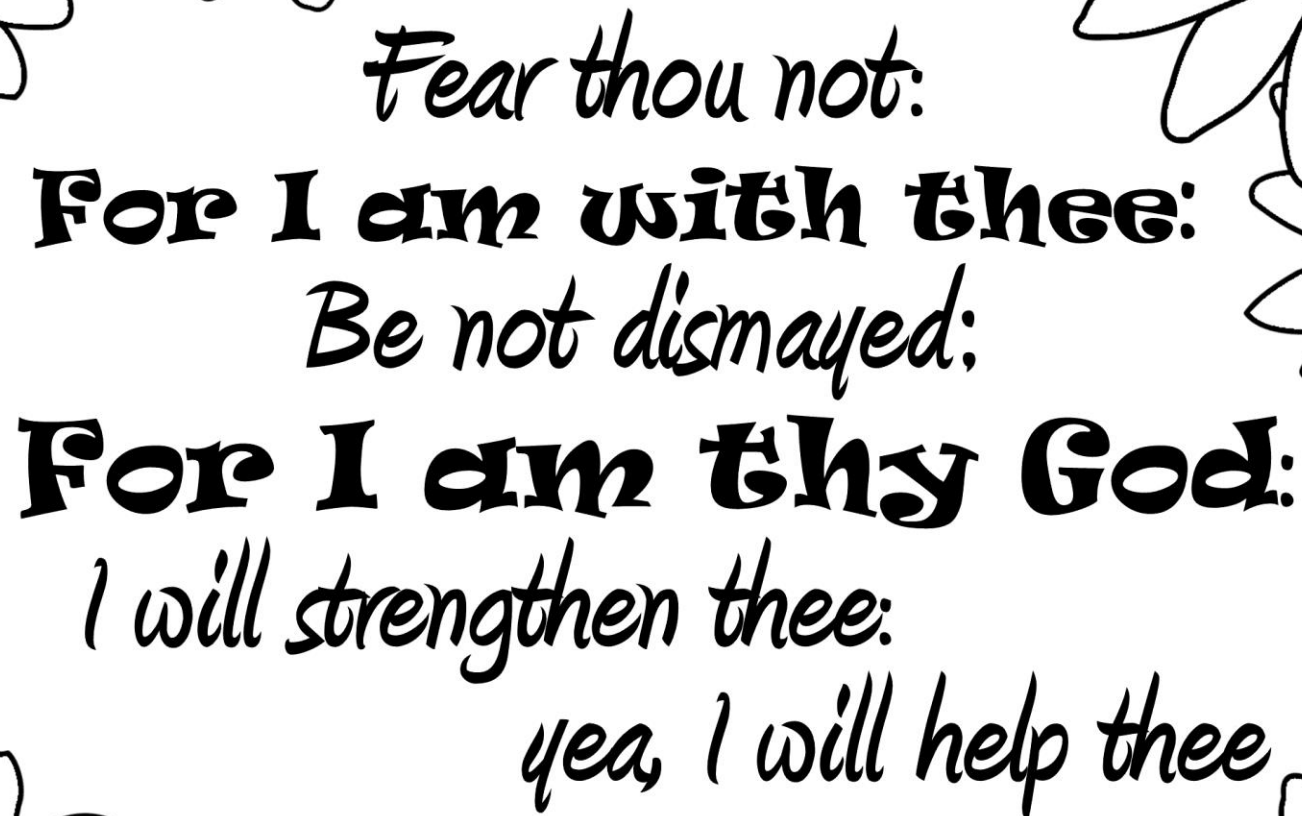 Fear thou not:
For I am with thee:
Be not dismayed:
For I am thy God:
I will strengthen thee:
yea, I will help thee